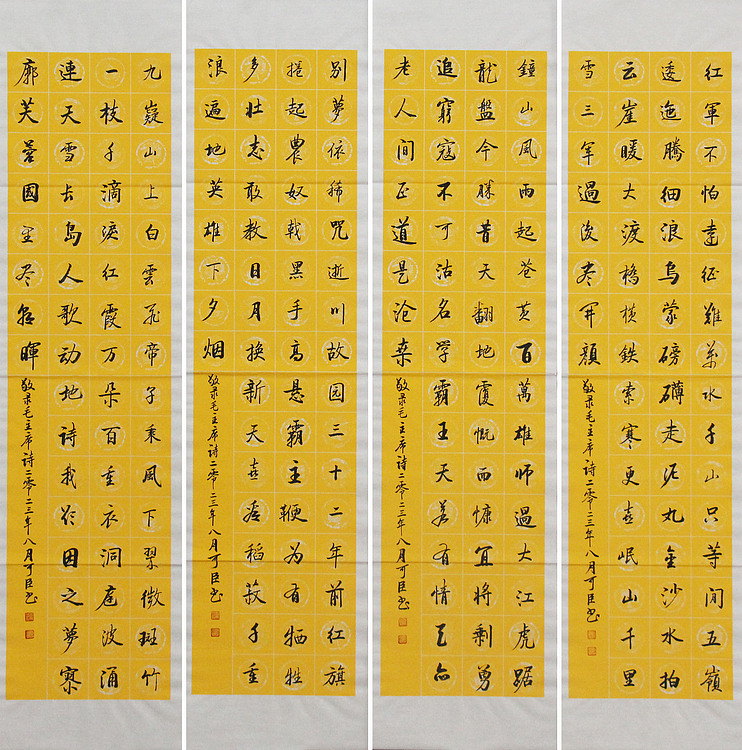 紅軍不怕遠征難萬水千山只等闲五嶺
逶迤騰細浪烏蒙磅礴走泥丸金沙水拍
云崖暖大渡橋橫鉄索寒更喜岷山千里
雪三軍過後尽開顏
敬录毛主席诗二零二三年八月可臣书
鐘山風雨起苍黄百萬雄师過大江虎踞
龍盤今勝昔天翻地覆慨而慷宜将剩勇
追窮寇不可沽名学霸王天若有情天亦
老人间正道是沧桑
敬录毛主席诗二零二三年八月可臣书
别夢依稀咒逝川故园三十二年前红旗
捲起農奴戟黑手高悬霸主鞭为有牺牲
多壮志敢教日月换新天喜看稻菽千重
浪遍地英雄下夕烟
敬录毛主席诗二零二三年八月可臣书
九嶷山上白雲飞帝子乘風下翠微斑竹
一枝千滴淚红霞万朵百重衣洞庭波涌
連天雪长島人歌动地詩我欲因之夢寥
廓芙蓉国里尽朝暉
敬录毛主席诗二零二三年八月可臣书